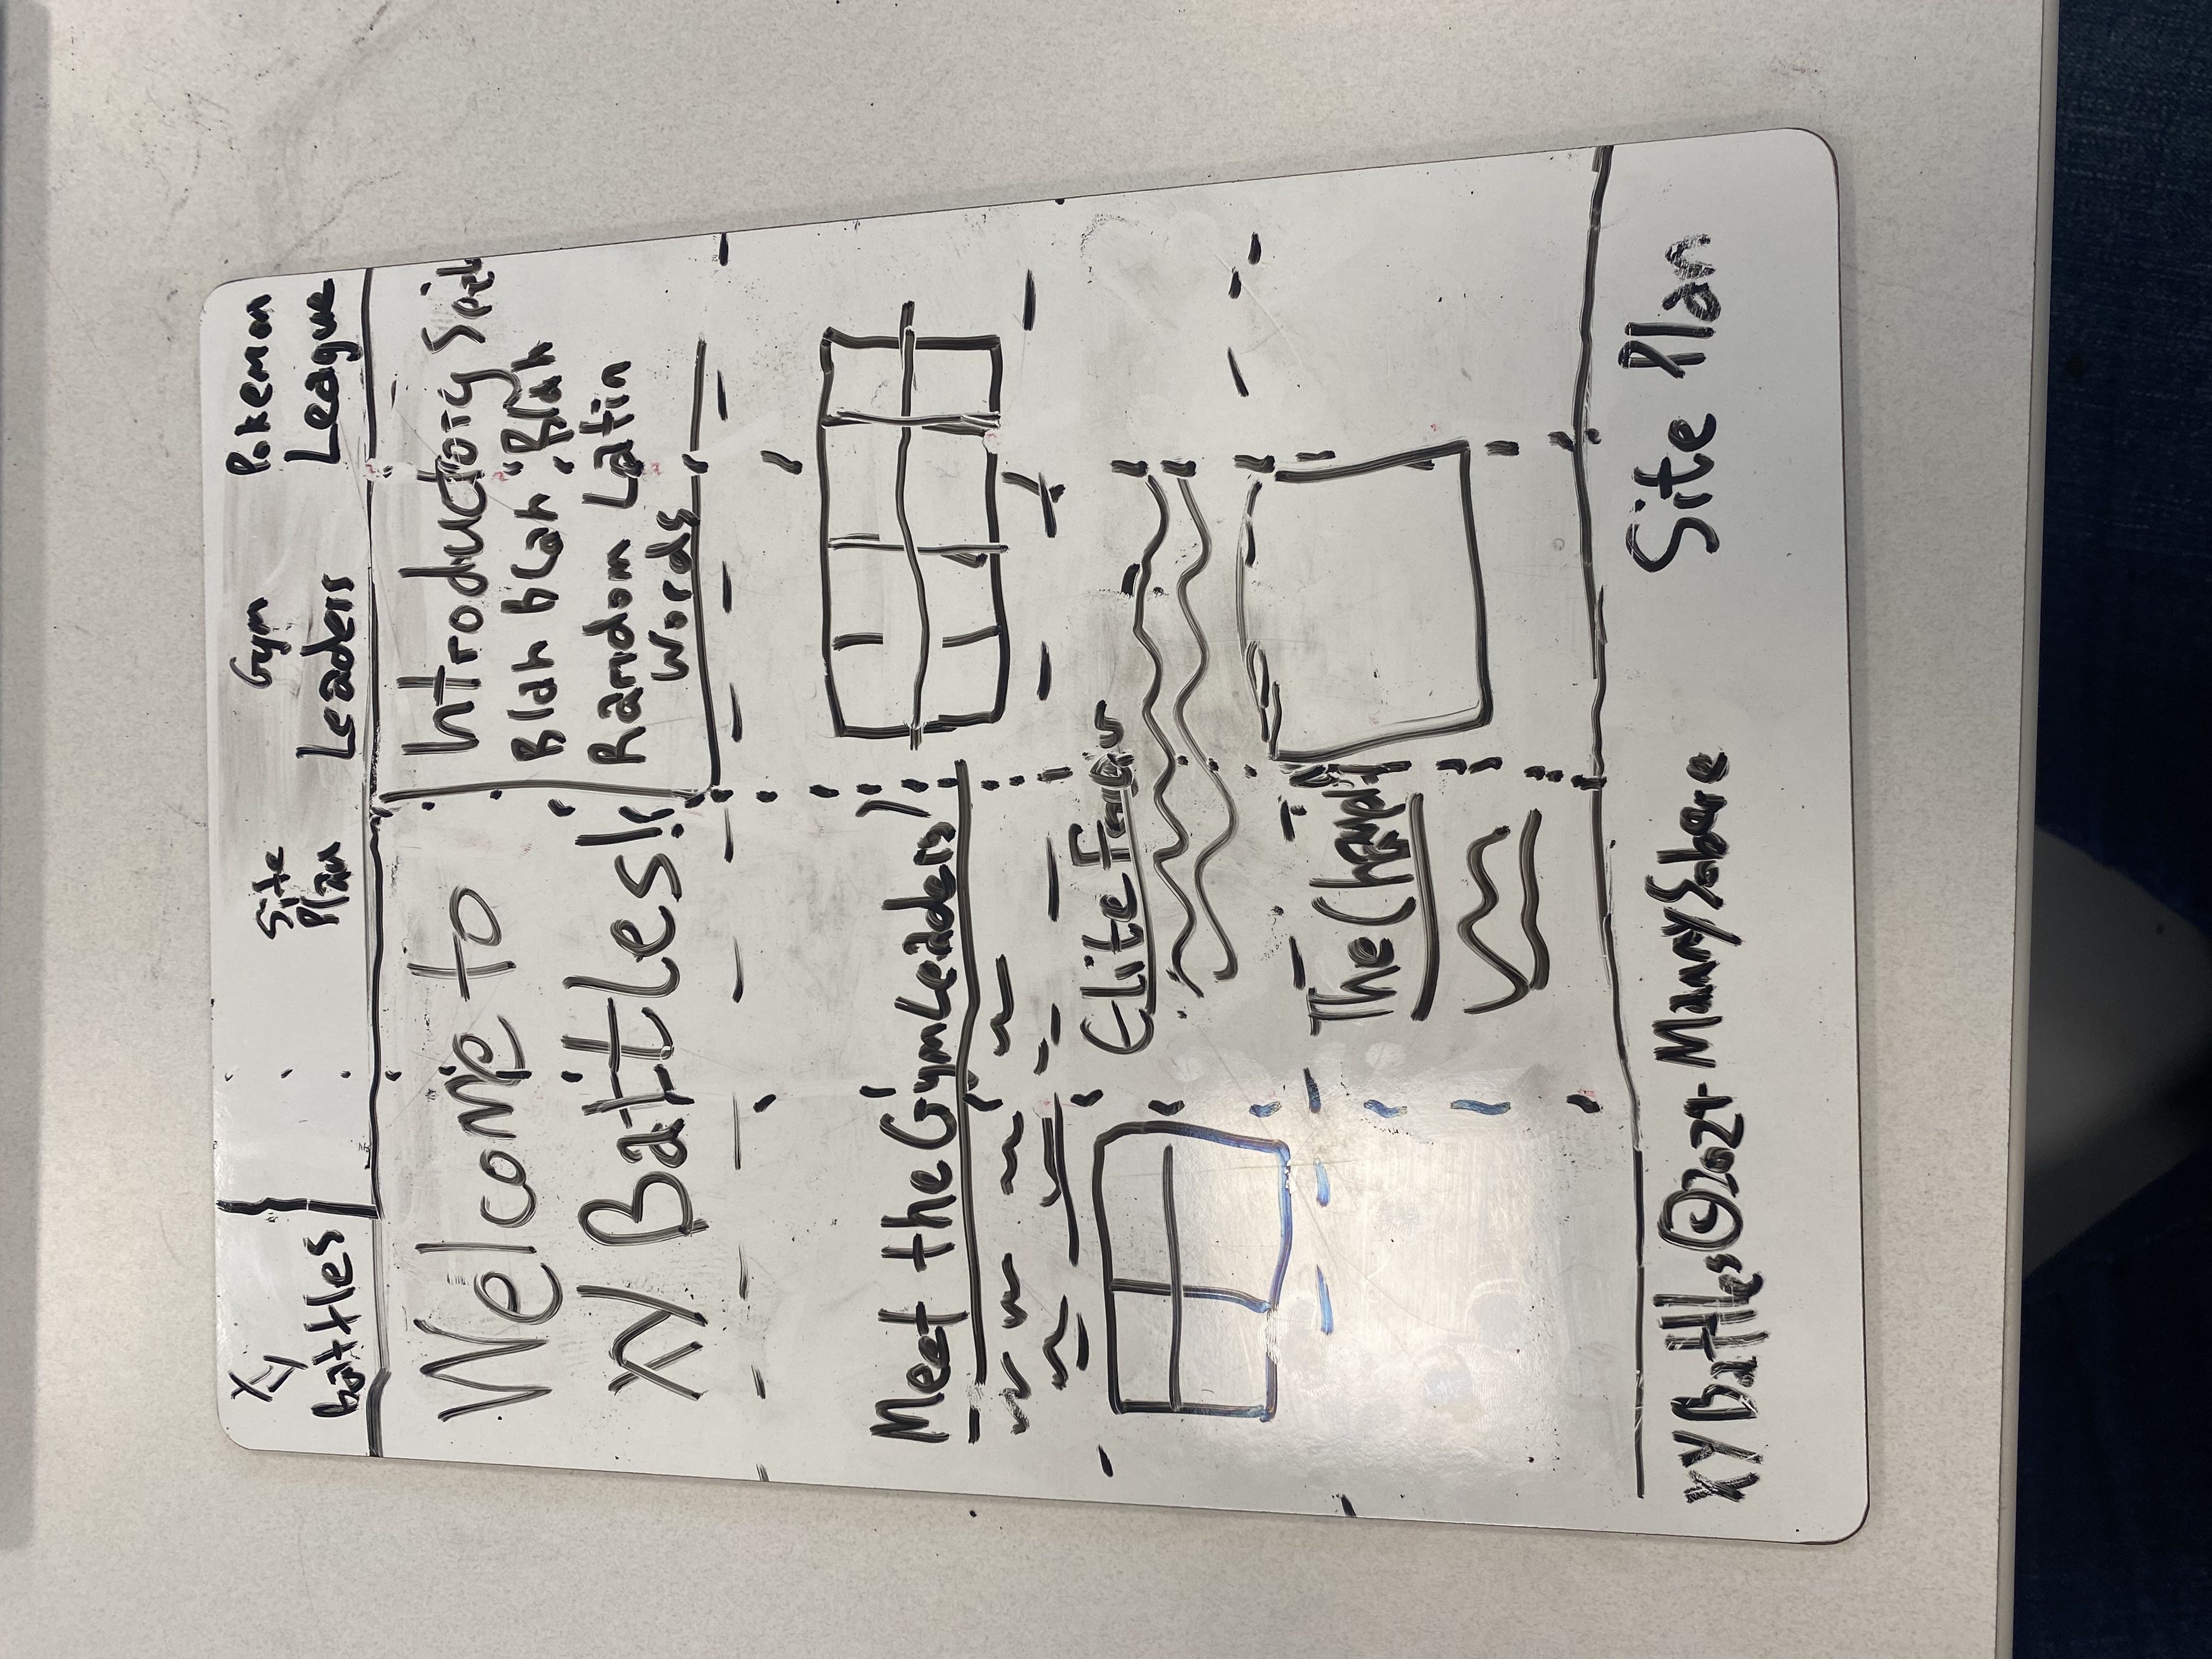 XY
Battles
Site
Plan
Gym
Leaders
Pokemon
League
Welcome to
XY Battles!
Introductory Spiel
Blah Blah Blah
Random Latin
Words
Meet the Gym Leaders!
Elite Four
The Champ
XY Battles © 2024 - Manny
Site Plan